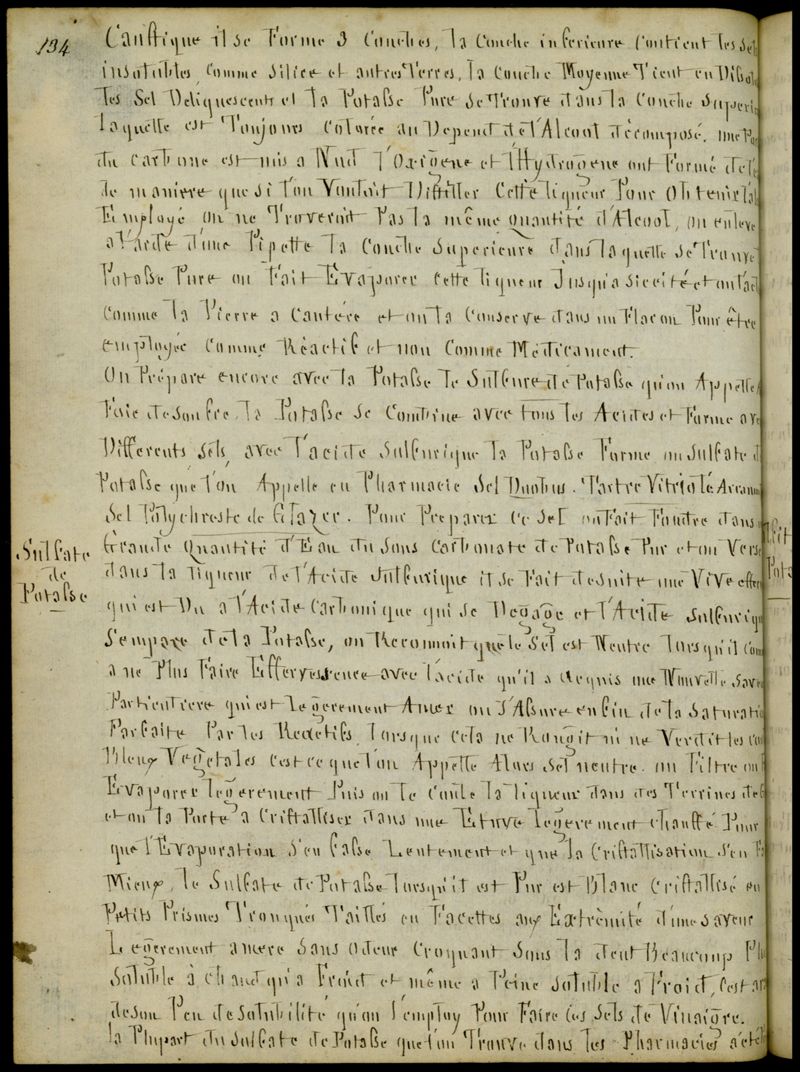 134
Caustique il se Forme 3 Couches, la Couche inferieure Contient les Sels
insolubles Comme Silice et autres Terres, la Couche Moyenne Tient en
les Sel Deliquescents et la Potasse Pure se Trouve dans la Couche
laquelle est Toujours Colorée au Depend de l'Alcool décomposé. une
du Carbone est mis a Nud l'Oxigene et l'Hydrogene ont Formé de
de maniere que si l'on Voulait Distiller Cette liqueur Pour Obtenir
Employé on ne Trouverait Pas la même quantité d'Alcool, on enleve
a l'aide d'une Pipette la Couche Superieure dans laquelle se Trouve
Potasse Pure on Fait Evaporer Cette liqueur Jusqu'a siccité et on
Comme la Pierre a Cautére et on la Conserve dans un Flacon Pour être
employée Comme Réactif et non Comme Médicament.
On Prépare encore avec la Potasse le Sulfure de Potasse qu'on Appelle
Foie de soufre, la Potasse se Combine avec tous les Acides et Forme
Differents Sels, avec l'acide Sulfurique la Potasse Forme un Sulfate
Potasse que l'on Appelle en Pharmacie Sel Duobus. Tartre Vitriolé
Sel Polychreste de Glazer. Pour Preparer Ce Sel on Fait Foudre dans
Grande Quantité d'Eau du Sous Carbonate de Potasse Pur et on Verse
Sulfate
de
Potasse
dans la liqueur de l'Acide Sulfurique il se Fait desuite une Vive
qui est Du a l'Acide Carbonique qui se Degage et l'Acide
S'empare de la Potasse, on Reconnoit que le Sel est Neutre lorsqu'il
a ne Plus Faire Effervessence avec l'acide qu'il a acquis une Nouvelle
Particuliere qui est Legerement Amer on s'Assure enfin de la
Parfaite Par les Reactifs, lorsque Cela ne Rougit ni ne Verdit les
Bleux Vegetales c'est ce que l'on Appelle Alors Sel neutre. on Filtre on
Evaporer legerement Puis on le Coule la liqueur dans des Terrines
et on la Porte a Cristalliser dans une Etuve legerement chauffé Pour
que l'Evaporation s'en Fasse Lentement et que la Cristallisation s'en
Mieux, le Sulfate de Potasse lorsqu'il est Pur est Blanc Cristallisé en
Petits Prismes Tronqués Taillés en Facettes aux Extrêmité d'une saveur
Legerement amere Sans Odeur Croquant Sous la dent Beaucoup
Soluble à chaud qu'a Froid et même a Peine Soluble a Froid, c'est
de son Peu de solubilité qu'on l'employ Pour Faire les Sels de Vinaigre.
la Plupart du Sulfate de Potasse que l'on Trouve dans les Pharmacies